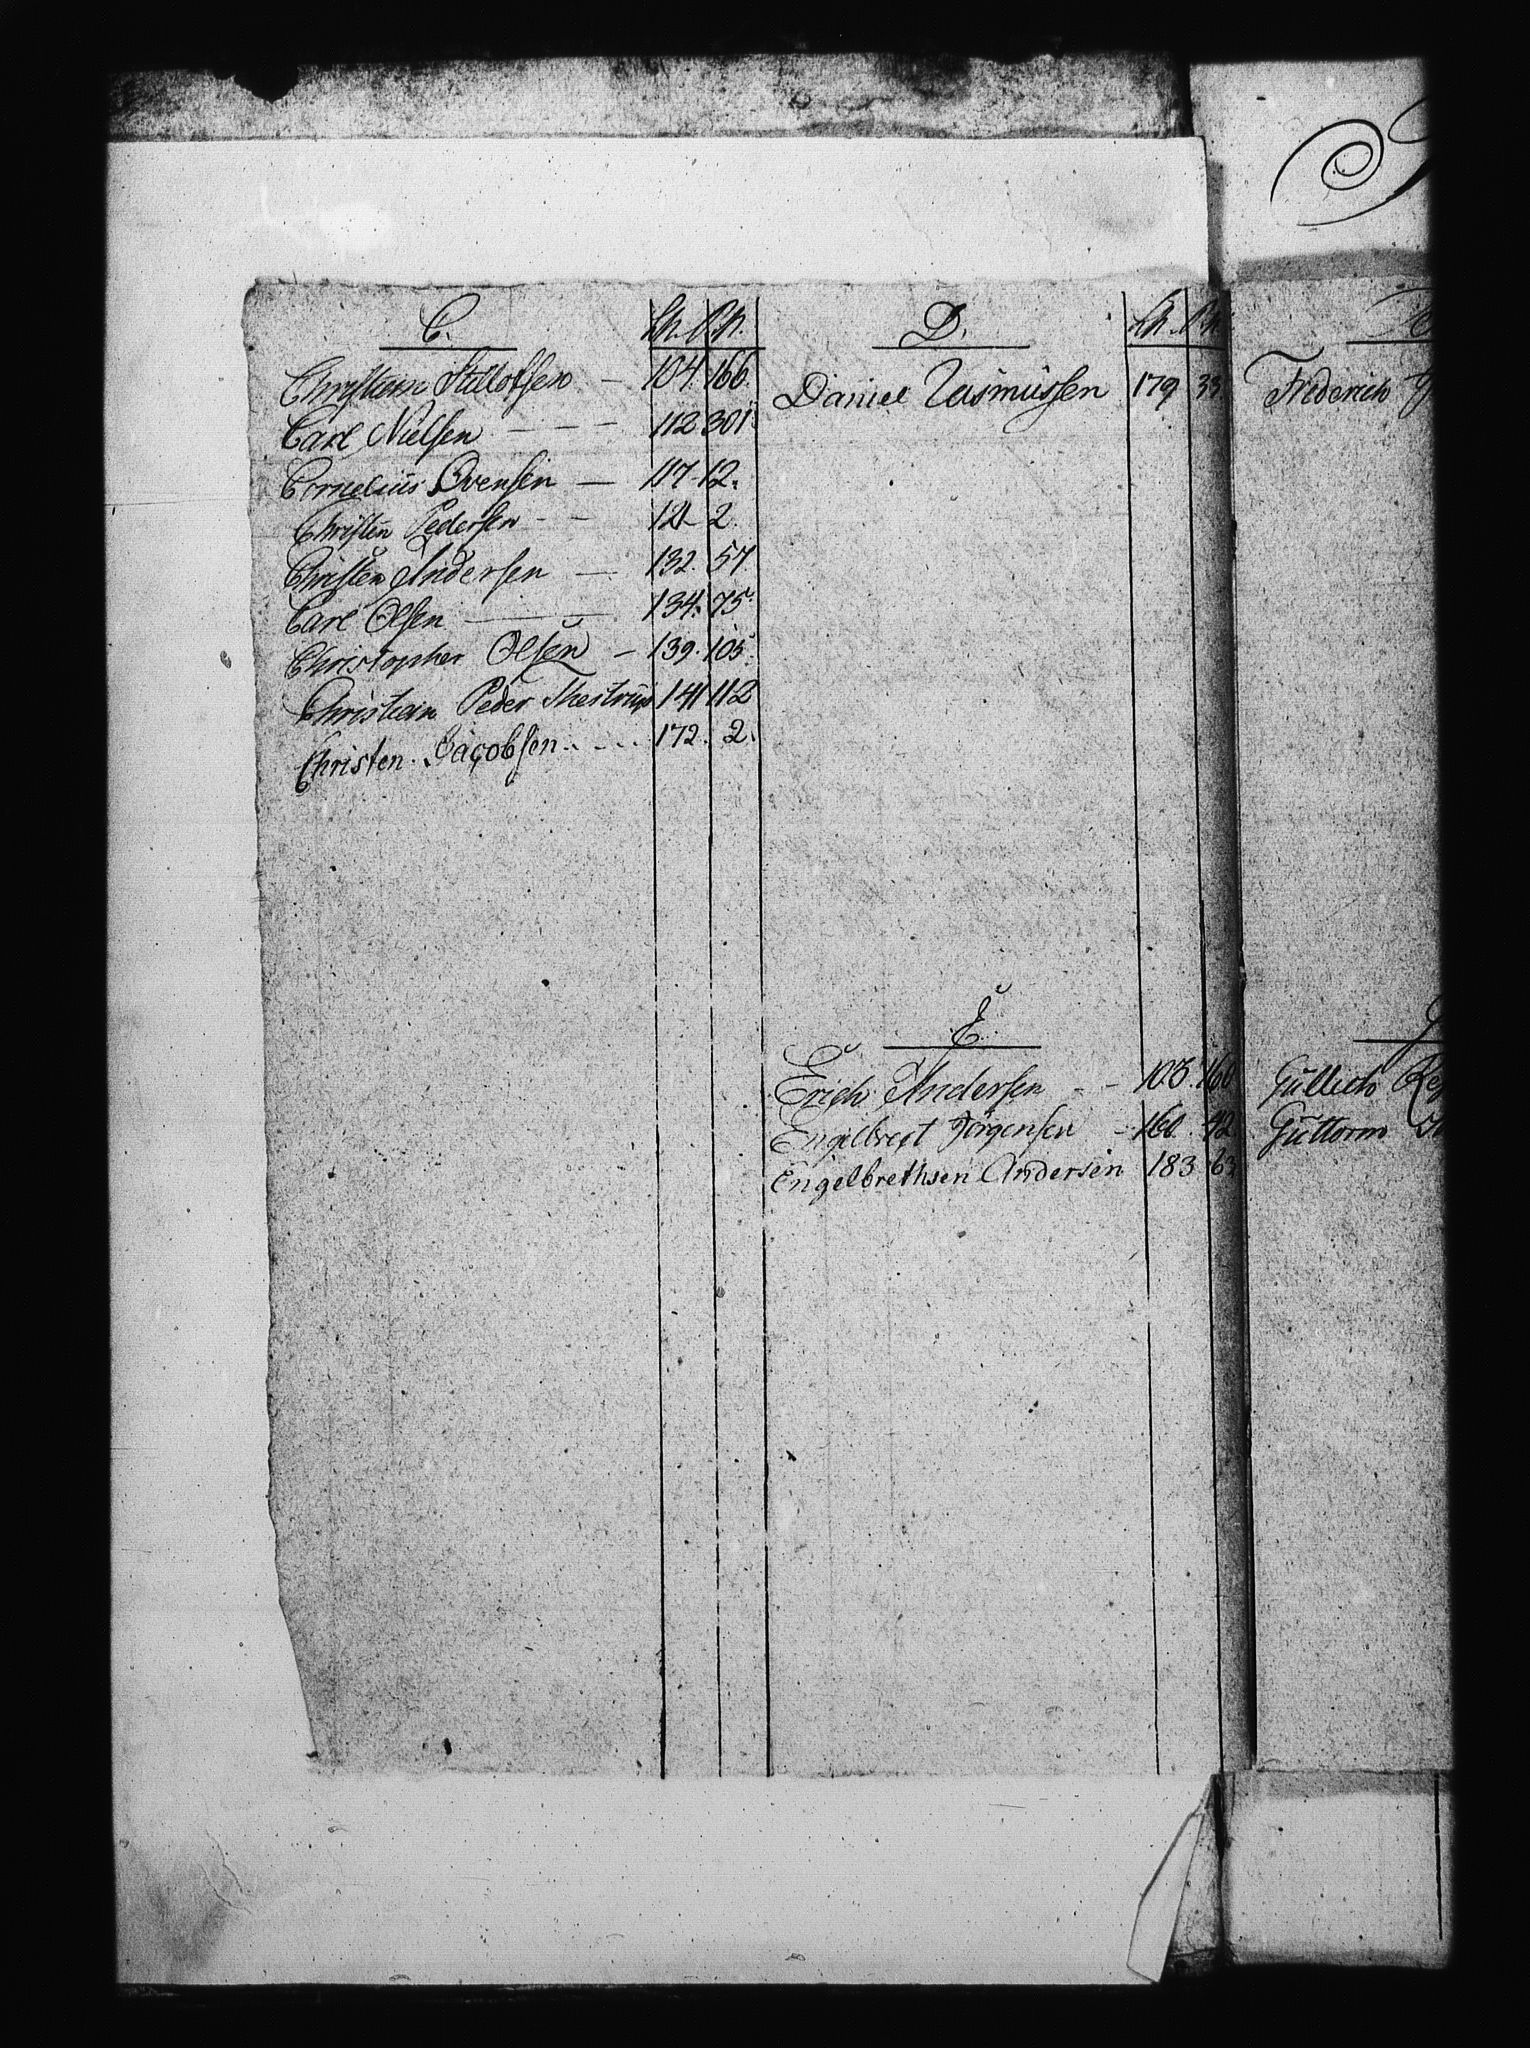 C.
Christian Stillofsen - 104. 166.
Carl Nielsen - - - 112 301.
Cornelius Svensen - 117 - 12.
Christen Pedersen - - 121 - 2.
Christen Andersen - 132. 57
Carl Olsen - 134. 75.
Christopher Olsen - 139. 105.
Christian Peder Thestrup 141 112
Christen Jacobsen 172. 2.
D.
Daniel Rasmussen 179 33
E.
Erich Andersen - - 103. 160
Engelbregt Jörgensen - 160. 42
Engelbrethsen Andersen 183 63
Friderich
Güllich
Güttorm